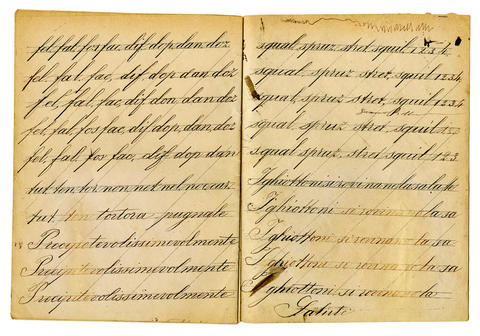 fel, fal, fos fac, dif, dop, dan, doz
fel, fal, fac, dif, dop dan doz
fel, fal, fac, dif don dan doz
fel, fal, fos fac, dif, dop, dan, doz
fel, fal, fos fac, dif dop dan doz
tut ton tor non net nel, noc, car
tut, ton tortora pugnale
Precipitevolissimevolmente
Precipitevolissimevolmente
Precipitevolissimevolmente
squal, spruz, stret, squil, 1234.
squal, spruz stret, squil 1234
squal, spruz, stret, squil, 1234
squal spruz stret, squil 123
squal, spruz, stret, squil 123.
I ghiottoni si rovinano la salute
I ghiottoni si rovinano la sa
I ghiottoni si rovinano la sa
I ghiottoni si rovino la sa
I ghiottoni si rovinano la sa
Salute